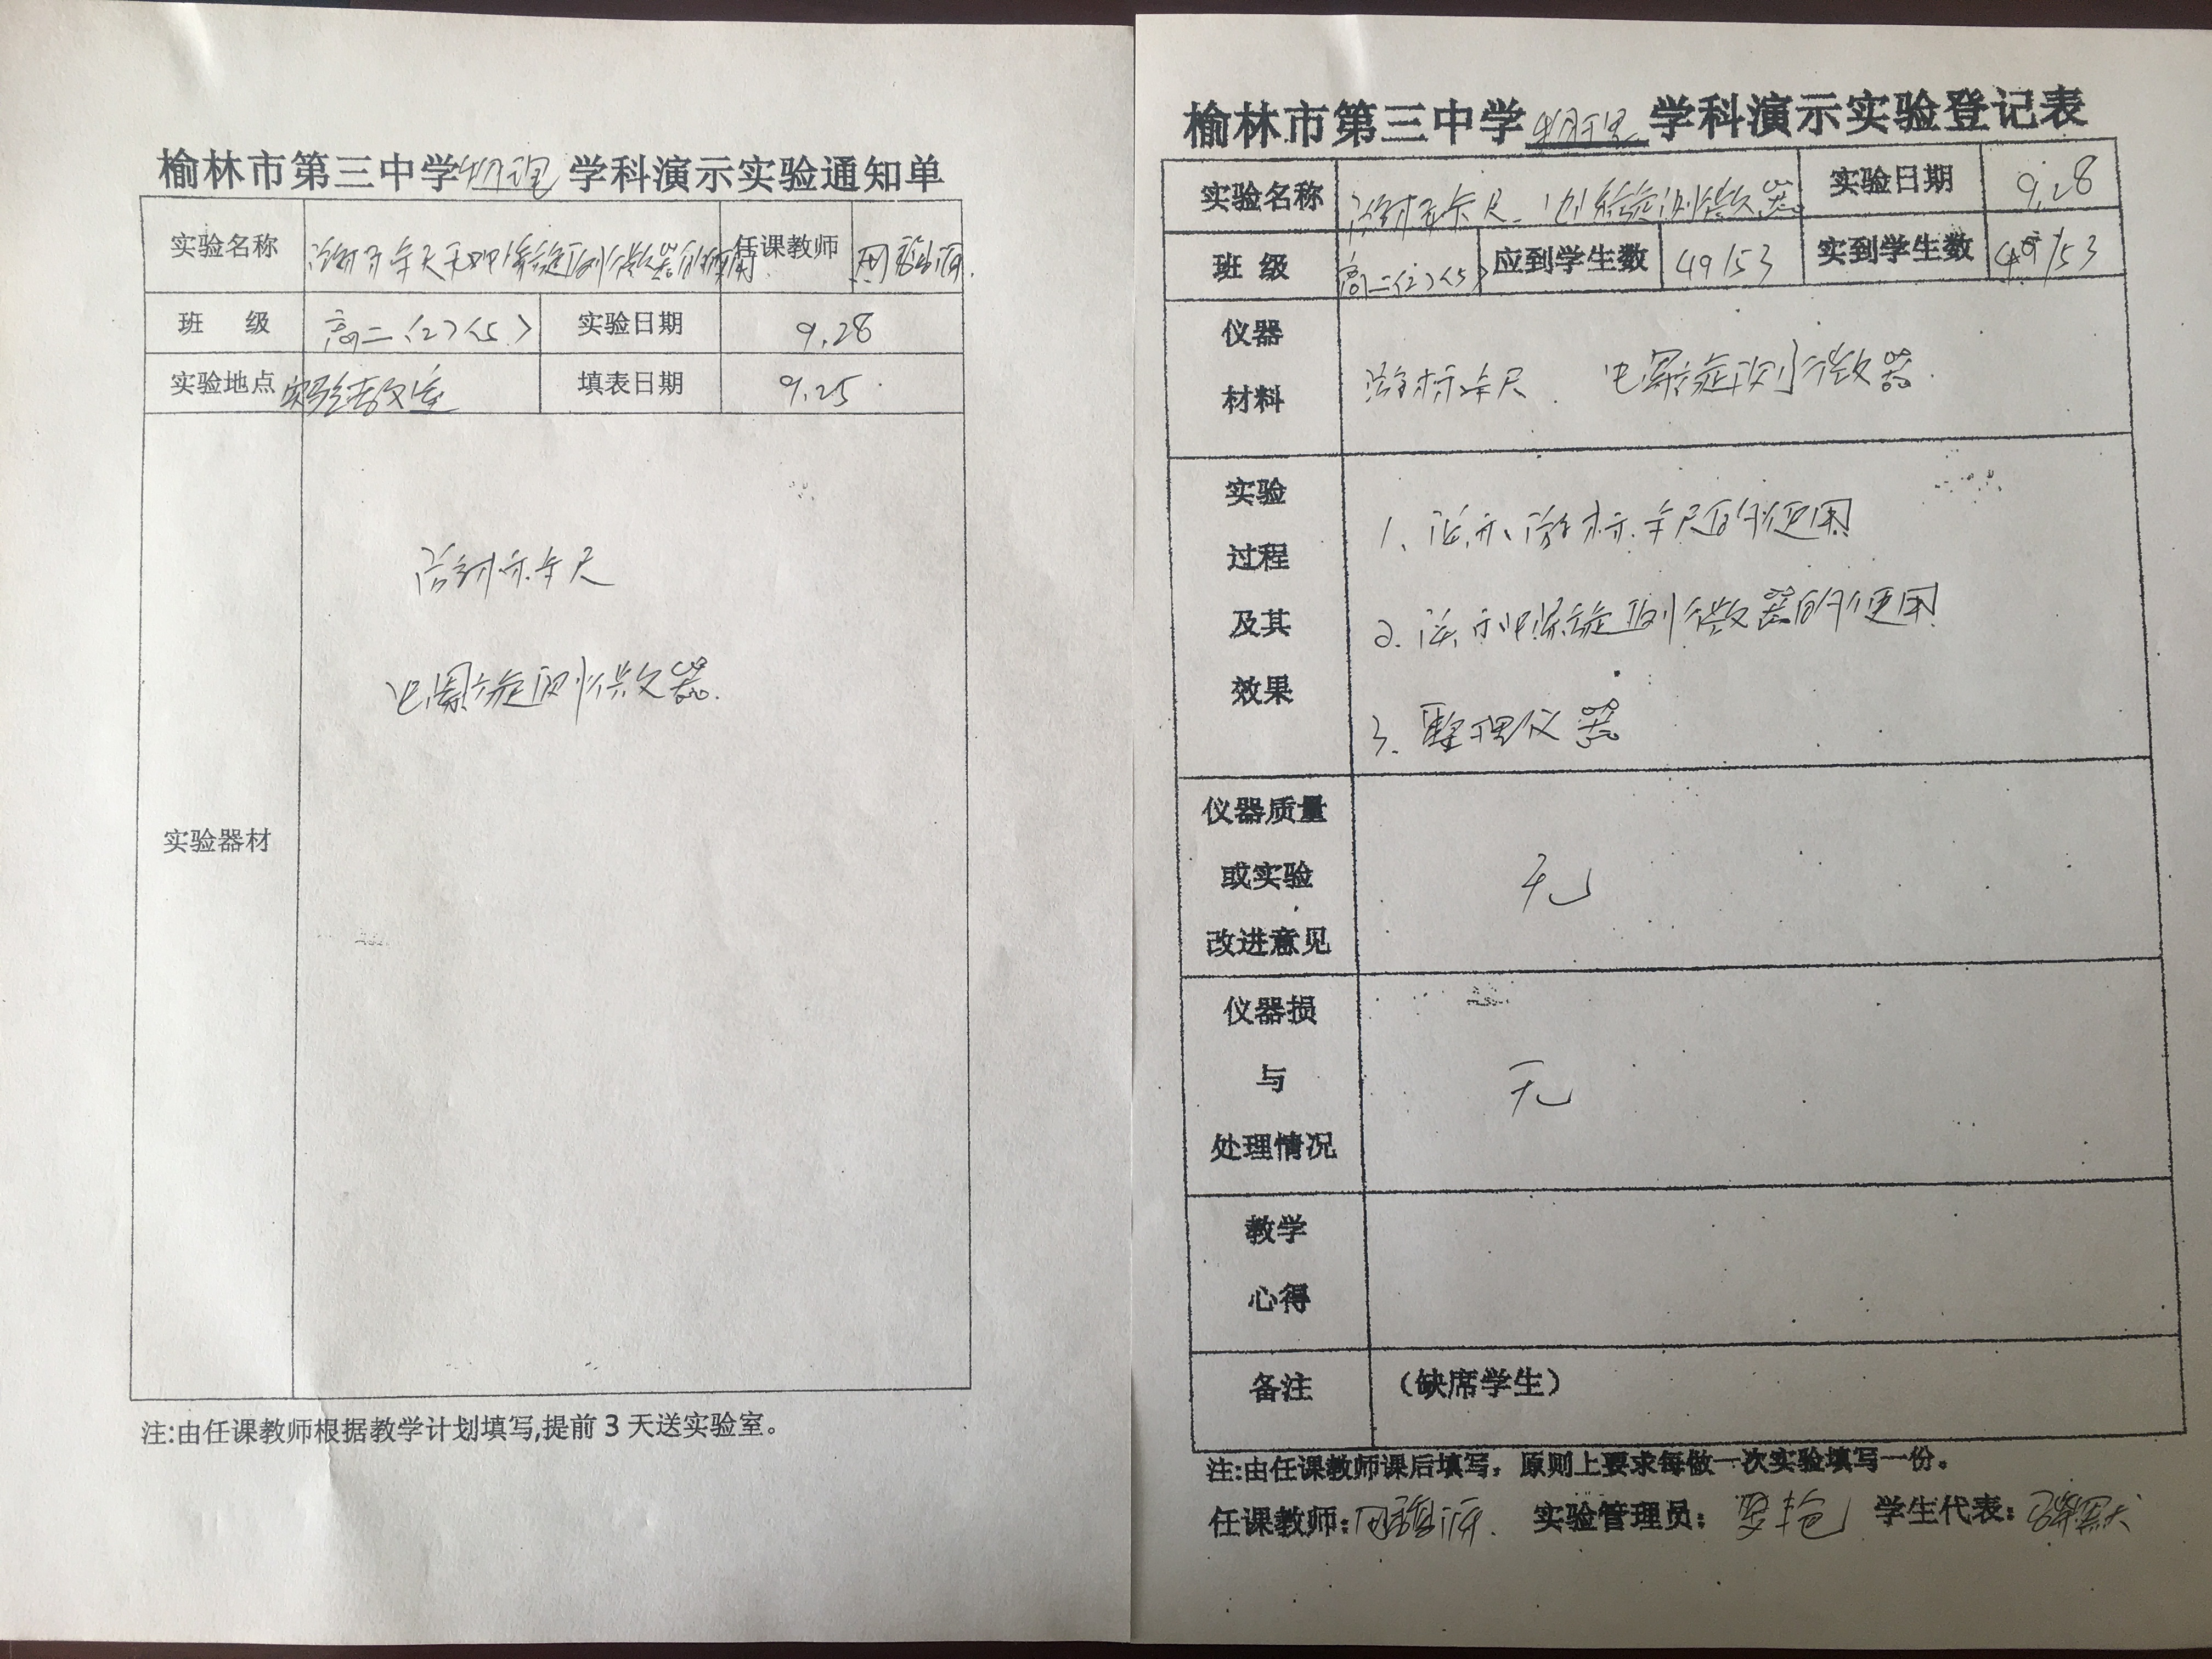 榆林市第三中学物理学科演示实验通知单
实验名称 游标卡尺和螺旋测微器的使用 任课教师
班 级 高二〈2〉〈5〉 实验日期 9.28
实验地点 实验室 填表日期 9.25
实验器材
游标卡尺
螺旋测微器.
注:由任课教师根据教学计划填写,提前3天送实验室。
榆林市第三中学物理学科演示实验登记表
实验名称 游标卡尺、螺旋测微器 实验日期 9.28
班 级 高二〈2〉〈5〉 应到学生数 49/53 实到学生数 49/53
仪器
材料
游标卡尺. 螺旋测微器.
实验
过程
及其
效果
1. 演示游标卡尺的使用
2. 演示螺旋测微器的使用
3. 整理仪器
仪器质量
或实验
改进意见
无
仪器损
与
处理情况
无
教学
心得
备注 (缺席学生)
注:由任课教师课后填写,原则上要求每做一次实验填写一份。
任课教师: 实验管理员: 学生代表: